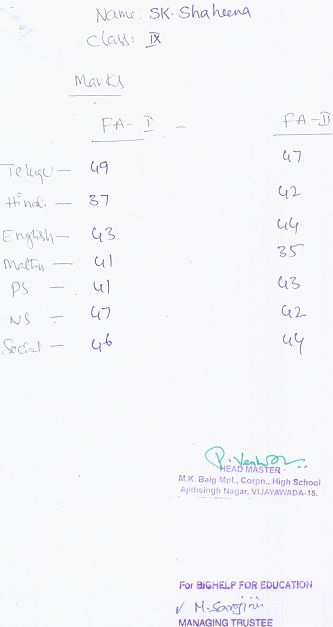 Name: SK. Shaheena
Class: IX
Marks
FA- I - FA-II
Telugu — 49 47
Hindi — 37 42
English — 43 44
Maths — 41 35
PS — 41 43
NS — 47 42
Social — 46 44
HEAD MASTER
M.K. Baig Mpl., Corpn., High School
Ajithsingh Nagar, VIJAYAWADA-15.
For BIGHELP FOR EDUCATION
M. Sarojini
MANAGING TRUSTEE